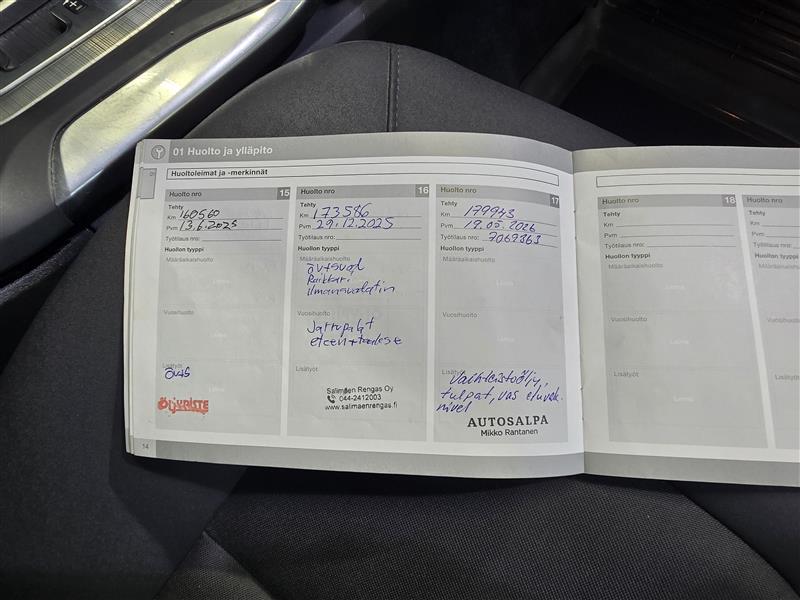 01 Huolto ja ylläpito
Huoltoleimat ja -merkinnät
Huolto nro 15
Tehty
Km 160560
Pvm 13.6.2025
Työtilaus nro:
Huollon tyyppi
Määräaikaishuolto
Leima
Vuosihuolto
Leima
Lisätyöt
Leima
ÖLJYRISTE
Huolto nro 16
Tehty
Km 173586
Pvm 29.12.2025
Työtilaus nro:
Huollon tyyppi
Määräaikaishuolto
öv+suod
Raikkari
ilmansuodatin
Vuosihuolto
Jarrupalat
eteen+taakse
Lisätyöt
Salimäen Rengas Oy
044-2412003
www.salimaenrengas.fi
Huolto nro 17
Tehty
Km 179943
Pvm 19.05.2026
Työtilaus nro: 7069363
Huollon tyyppi
Määräaikaishuolto
Leima
Vuosihuolto
Leima
Lisätyöt
Vaihteistoöljy,
tulpat, vas etuvak.
nivel
AUTOSALPA
Mikko Rantanen
14
Huolto nro 18
Tehty
Km
Pvm
Työtilaus nro:
Huollon tyyppi
Määräaikaishuolto
Leima
Vuosihuolto
Leima
Lisätyöt
Leima
Huolto nro
Tehty
Km
Pvm